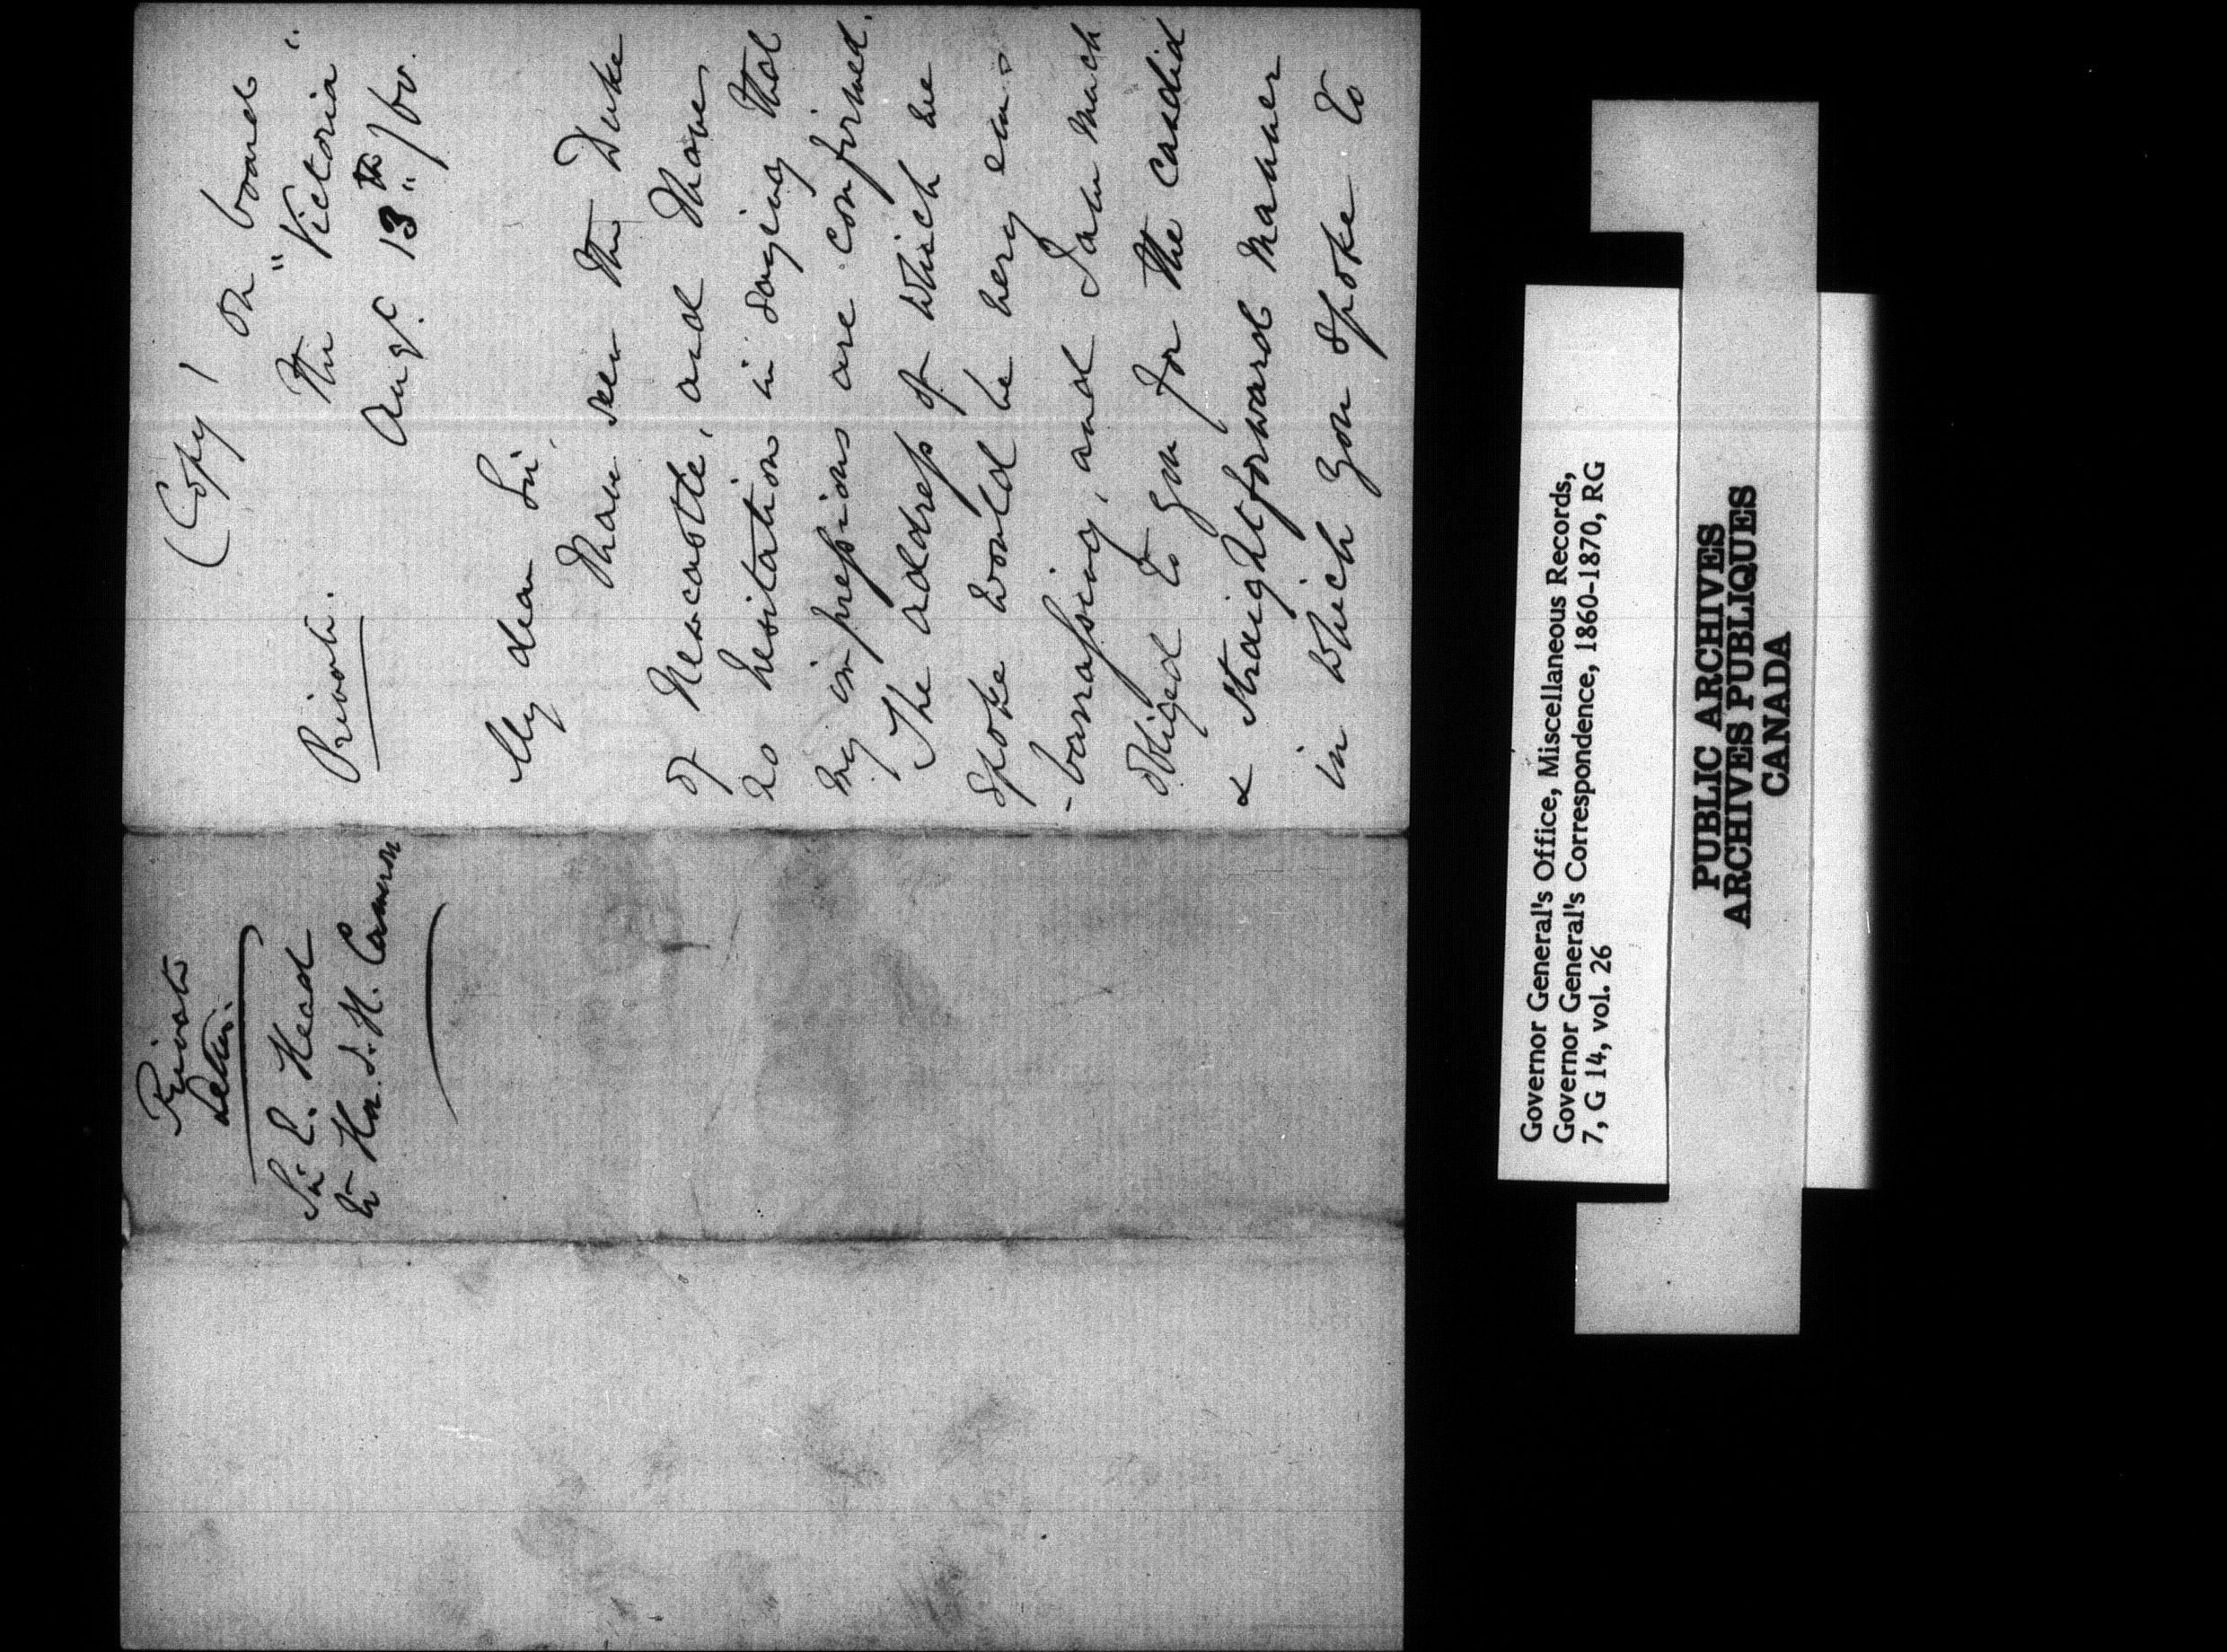 (Copy)
on board
Private.
the "Victoria"
Aug. 13th/60.
My dear Sir,
I have seen the Duke
of Newcastle, and I have
no hesitation in saying that
my impressions are confirmed.
The address of which we
spoke would be very em-
-barrassing, and I am much
obliged to you for the candid
& straightforward manner
in which you spoke to
Private
letter.
Sir E. Head
to Hon. J. H. Cameron
Governor General's Office, Miscellaneous Records,
Governor General's Correspondence, 1860-1870, RG
7, G 14, vol. 26
PUBLIC ARCHIVES
ARCHIVES PUBLIQUES
CANADA